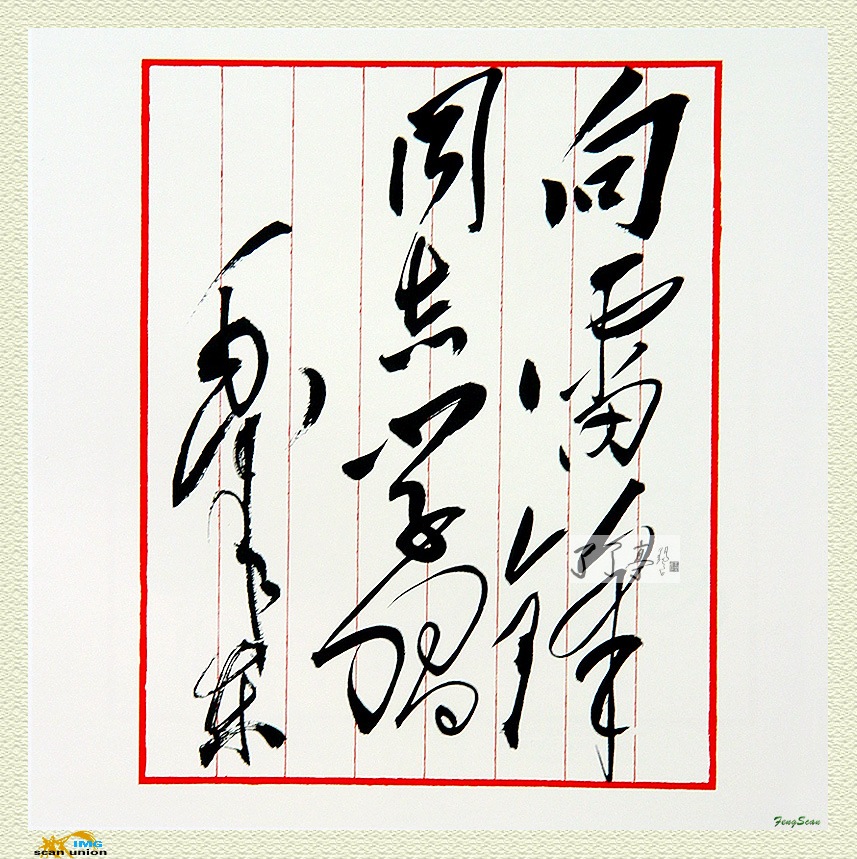 向雷锋
同志学习
毛泽东
IMG
scan union
FengScan